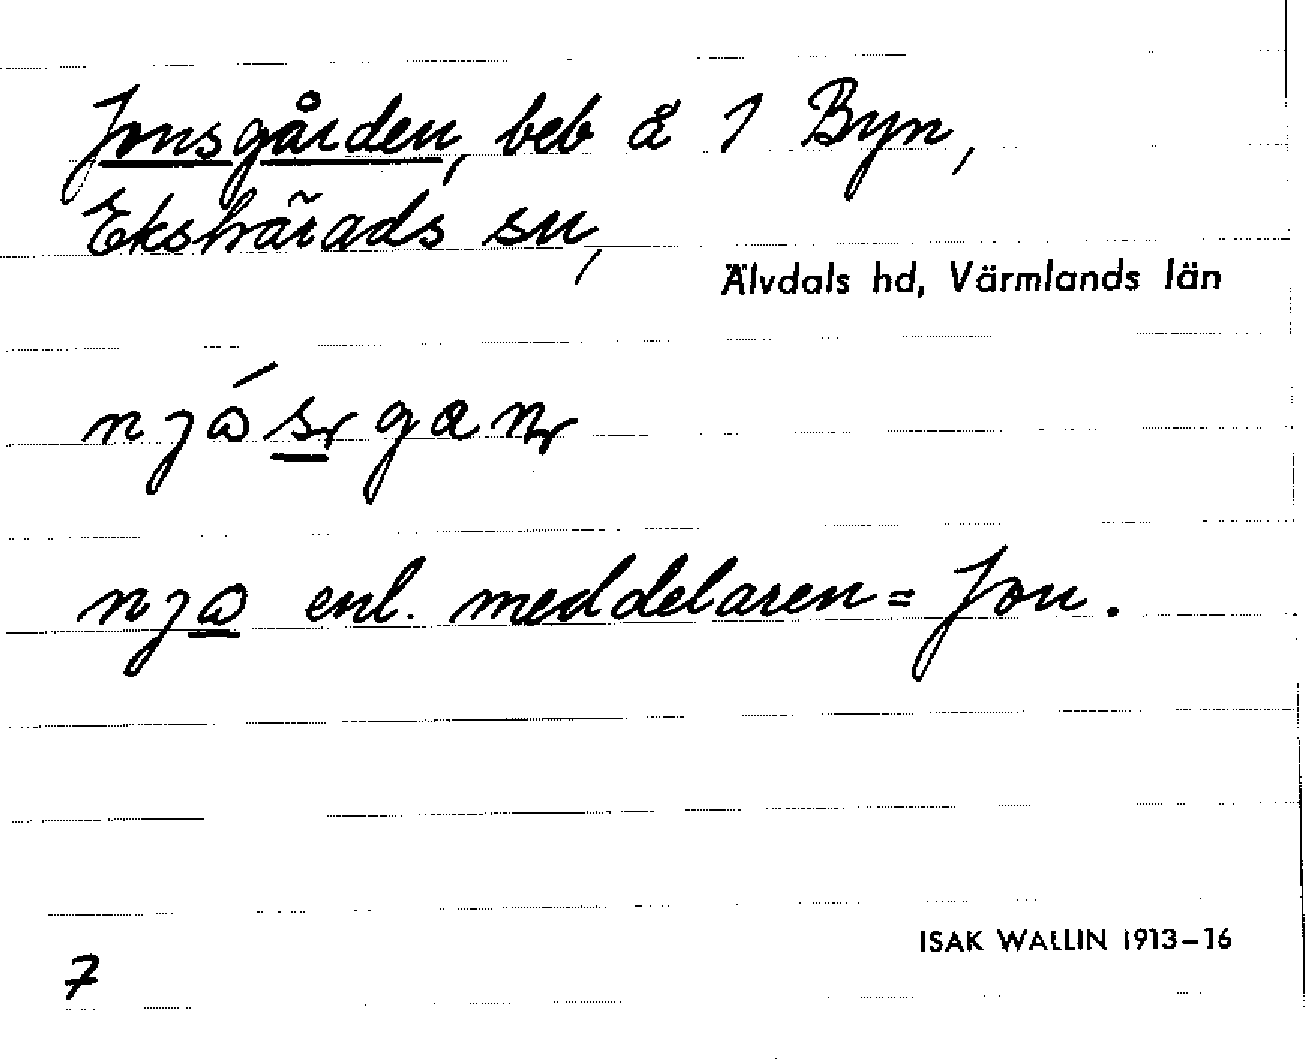 Jonsgården, beb å 1 Byn,
Ekshärads sn,
Älvdals hd, Värmlands län
njåsgan
nja enl. meddelaren = Jon.
ISAK WALLIN 1913-16
7